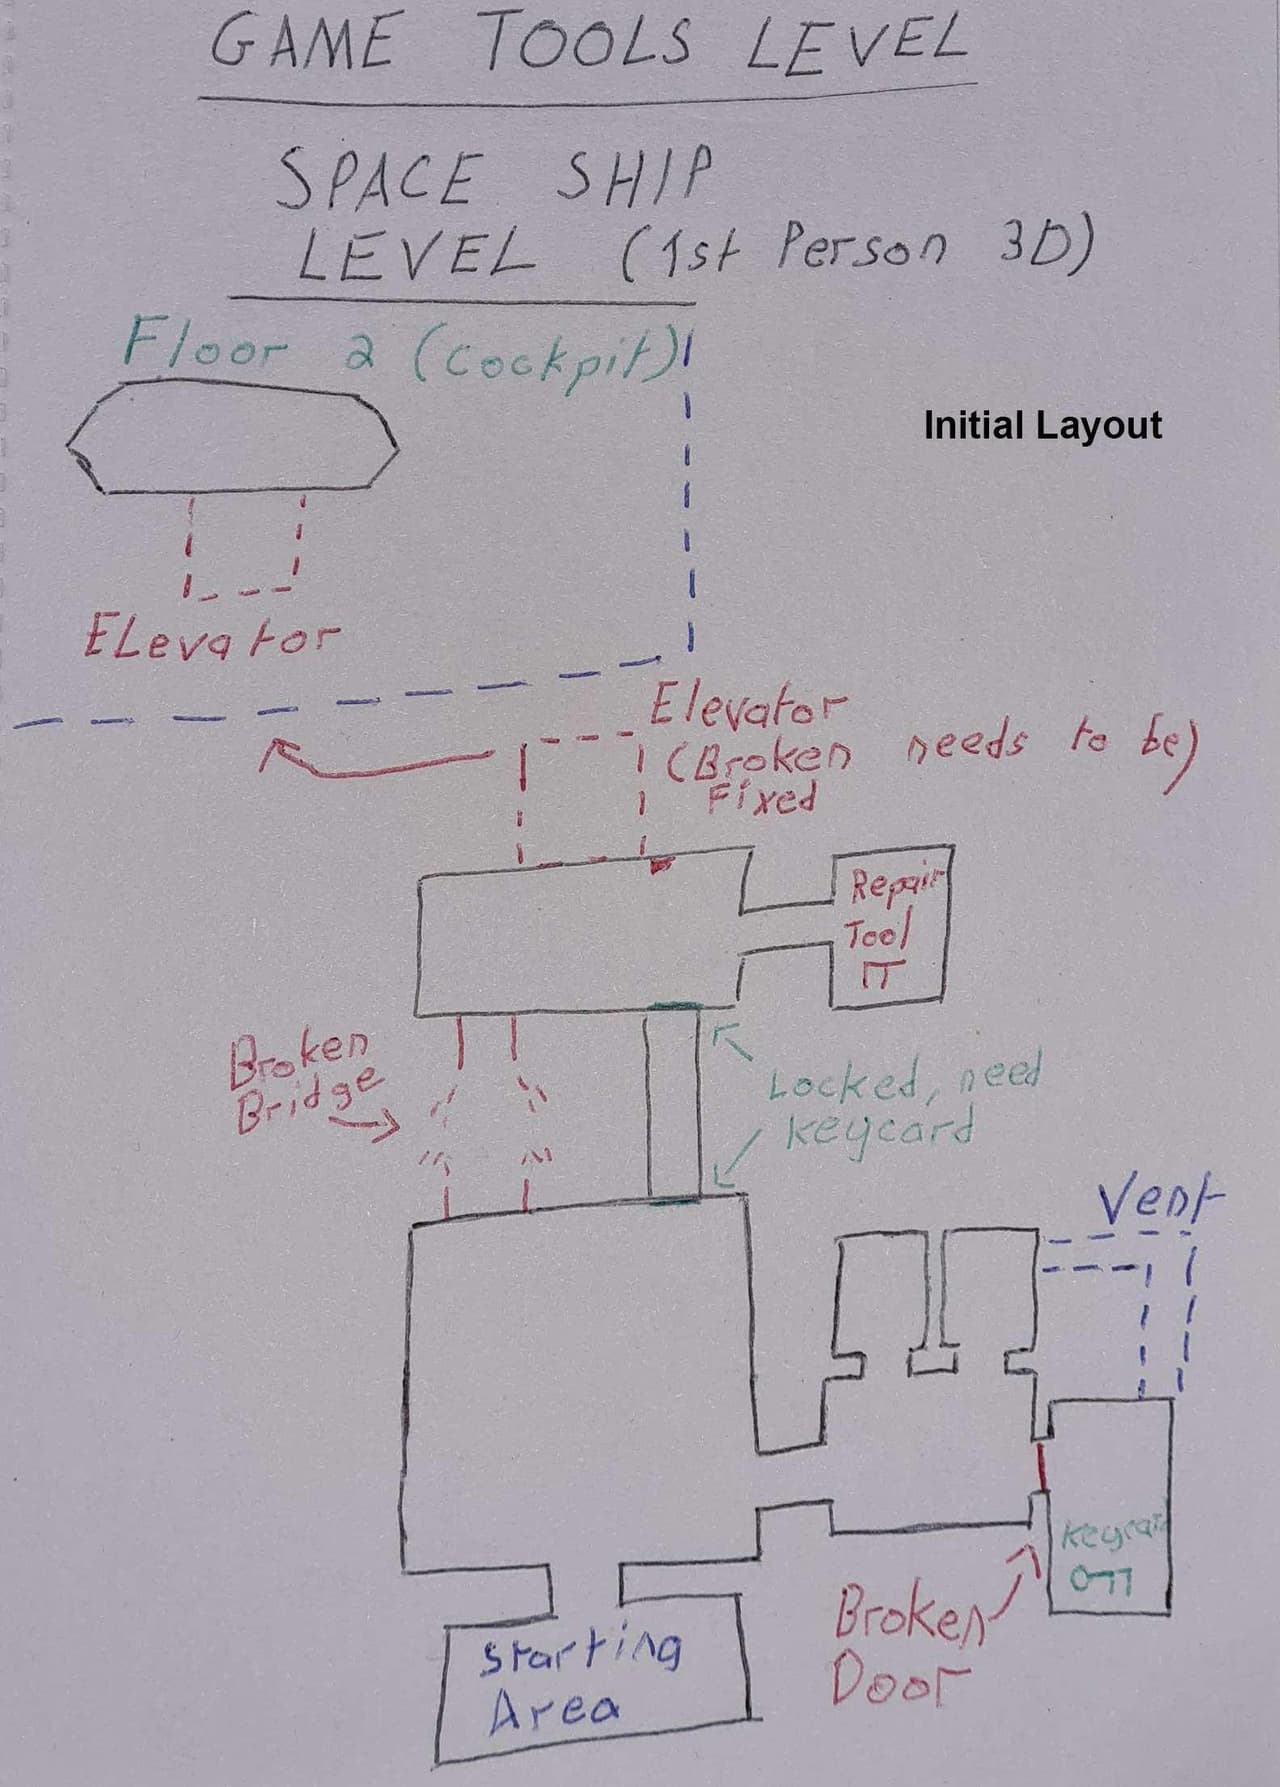 GAME TOOLS LEVEL
SPACE SHIP
LEVEL (1st Person 3D)
Floor 2 (Cockpit)
Initial Layout
ELevator
Elevator
(Broken needs to be)
Fixed
Repair
Tool
Broken
Bridge
Locked, need
keycard
Vent
keycard
Broken
Door
Starting
Area